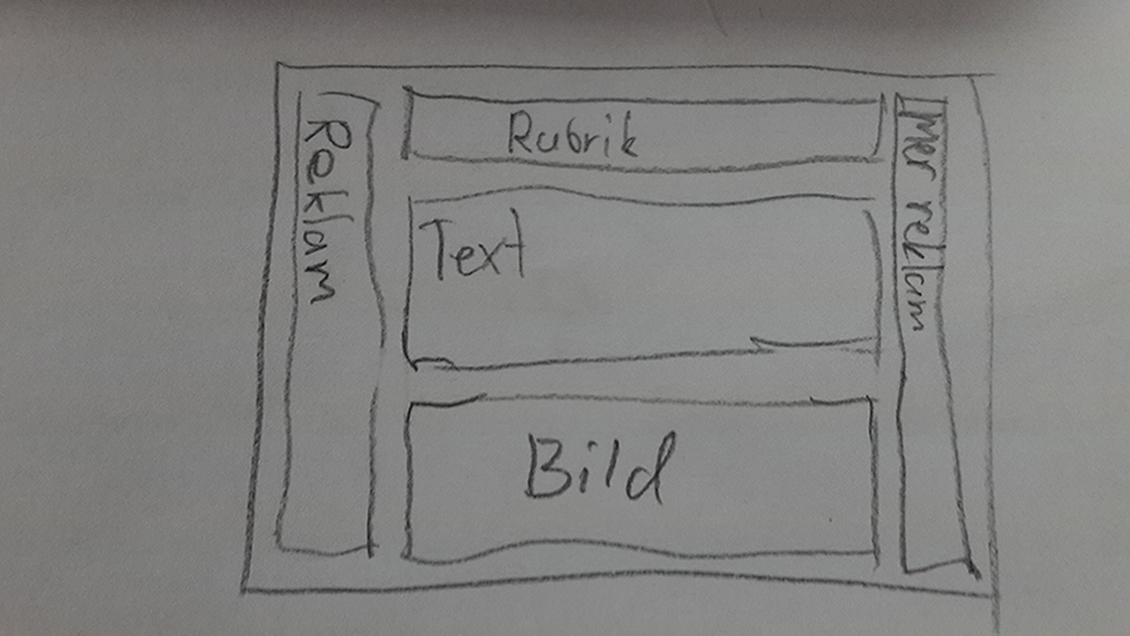 Reklam
Rubrik
Text
Bild
Mer reklam